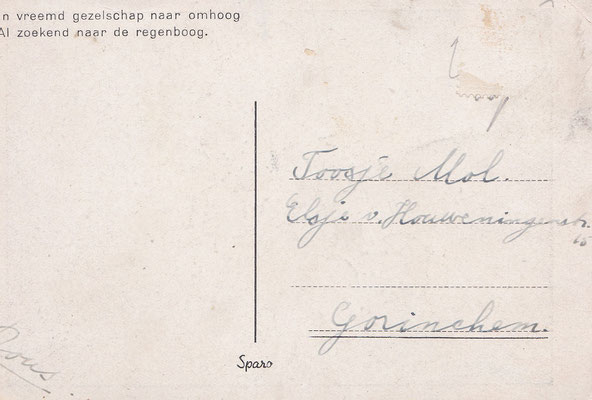 n vreemd gezelschap naar omhoog
Al zoekend naar de regenboog.
Toosje Mol.
Elsje v. Houweningenstr.
15
Gorinchem.
Sparo